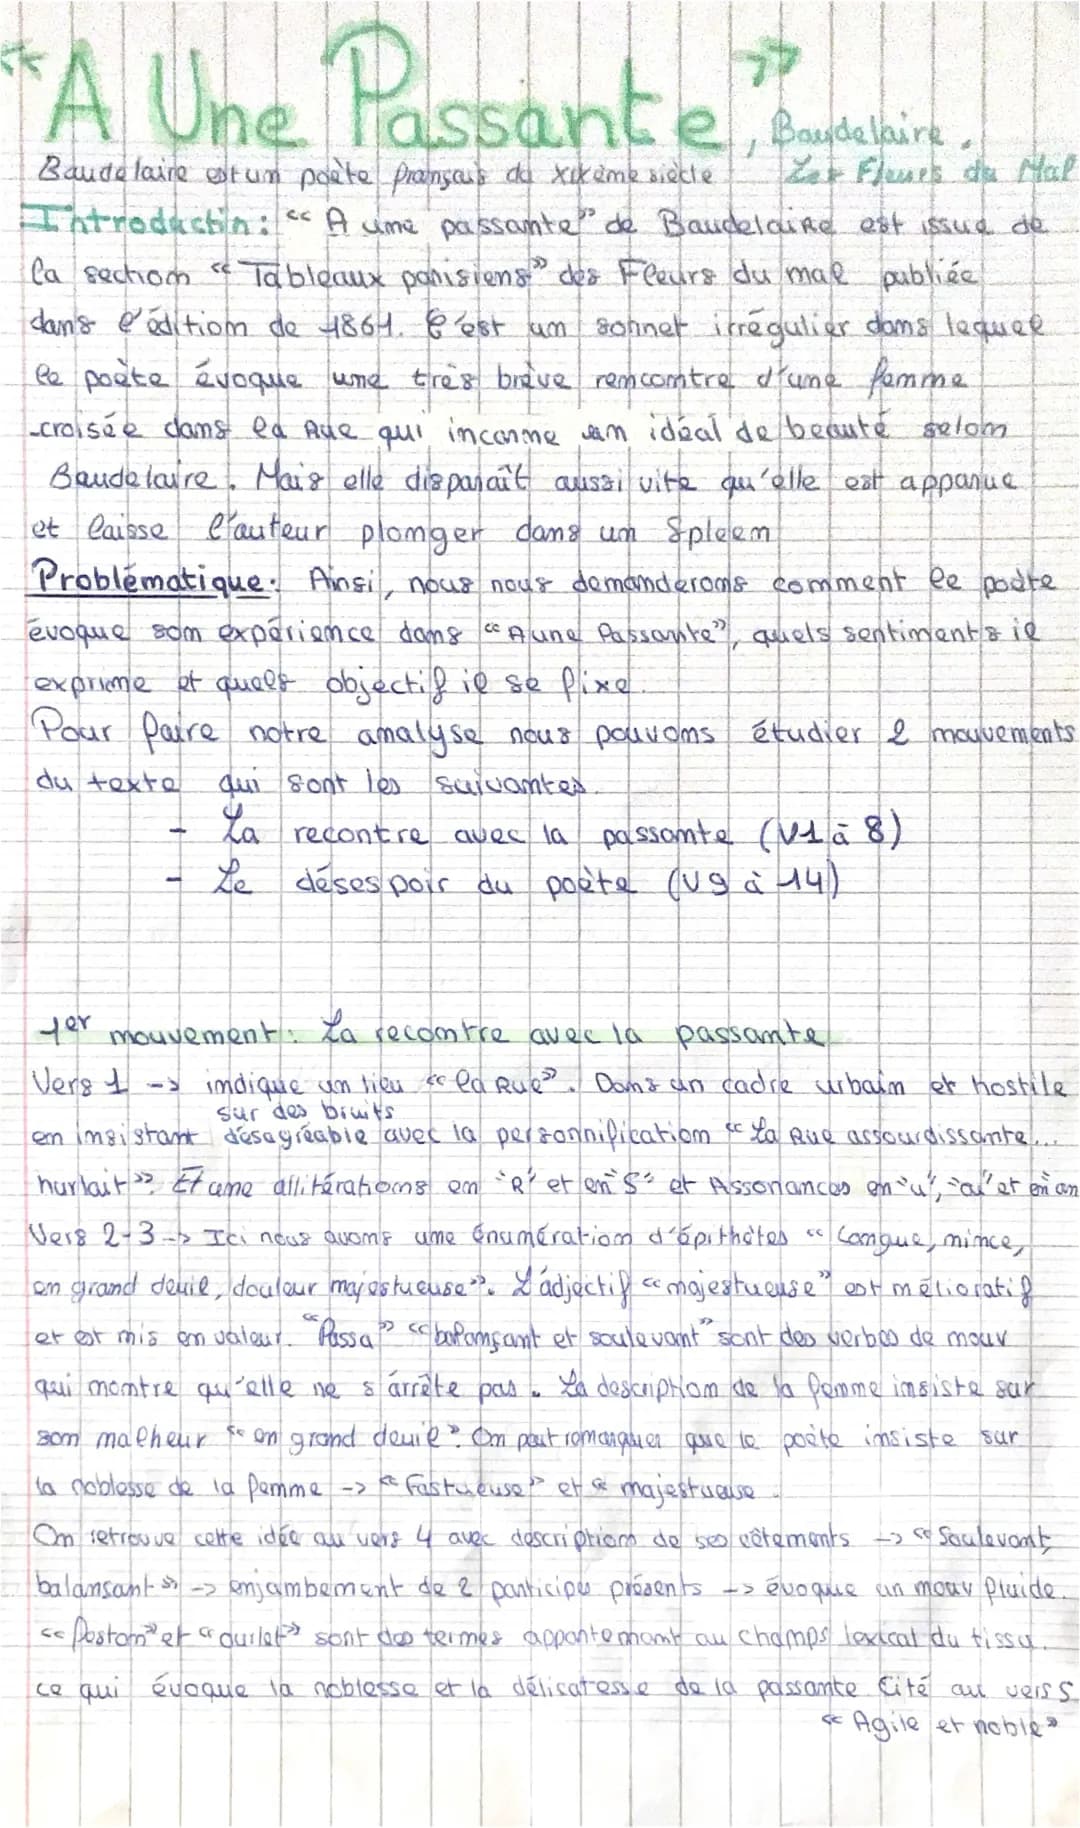 « A Une Passante », Baudelaire,
Baudelaire est un poète français du XIXème siècle Les Fleurs du Mal
Introductin : « A une passante » de Baudelaire est issue de
la section « Tableaux parisiens » des Fleurs du mal publiée
dans l'édition de 1861. C'est un sonnet irrégulier dans lequel
le poète évoque une très brève rencontre d'une femme
croisée dans la Rue qui incarne un idéal de beauté selon
Baudelaire. Mais elle disparaît aussi vite qu'elle est apparue
et laisse l'auteur plonger dans un Spleen
Problématique : Ainsi, nous nous demanderons comment le poète
évoque son expérience dans « A une Passante », quels sentiments il
exprime et quels objectif il se fixe.
Pour faire notre analyse nous pouvons étudier 2 mouvements
du texte qui sont les suivantes.
- La recontre avec la passante (V1 à 8)
- Le désespoir du poète (V9 à 14)
1er mouvement : La recontre avec la passante
Vers 1 -> indique un lieu « la Rue ». Dans un cadre urbain et hostile
sur des bruits
en insistant désagréable avec la personnification « La Rue assourdissante...
hurlait ». Et une allitérations en "R" et en "S" et Assonances en "u", "ou" et en an
Vers 2-3 -> Ici nous avons une énumération d'épithètes « Longue, mince,
en grand deuil, douleur majestueuse ». L'adjectif « majestueuse » est mélioratif
et est mis en valeur. « Passa » « balançant et soulevant » sont des verbes de mouv
qui montre qu'elle ne s'arrête pas. La description de la femme insiste sur
son malheur « en grand deuil ». On peut remarquer que le poète insiste sur
la noblesse de la femme -> « Fastueuse » et « majestueuse.
On retrouve cette idée au vers 4 avec description de ses vêtements -> « Soulevant,
balansant » -> enjambement de 2 participes présents -> évoque un mouv fluide.
« feston » et « ourlet » sont des termes appartenant au champs lexical du tissu.
ce qui évoque la noblesse et la délicatesse de la passante Cité au vers 5
« Agile et noble »